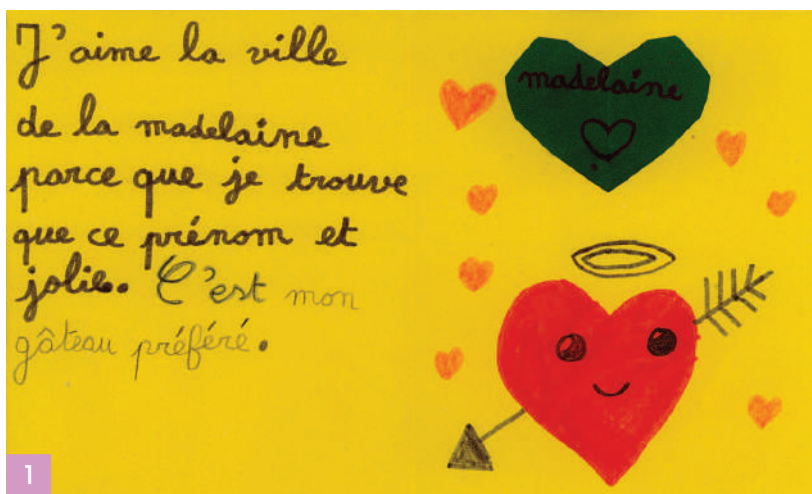 J'aime la ville
de la madelaine
parce que je trouve
que ce prénom et
jolie. C'est mon
gâteau préféré.
madelaine
1